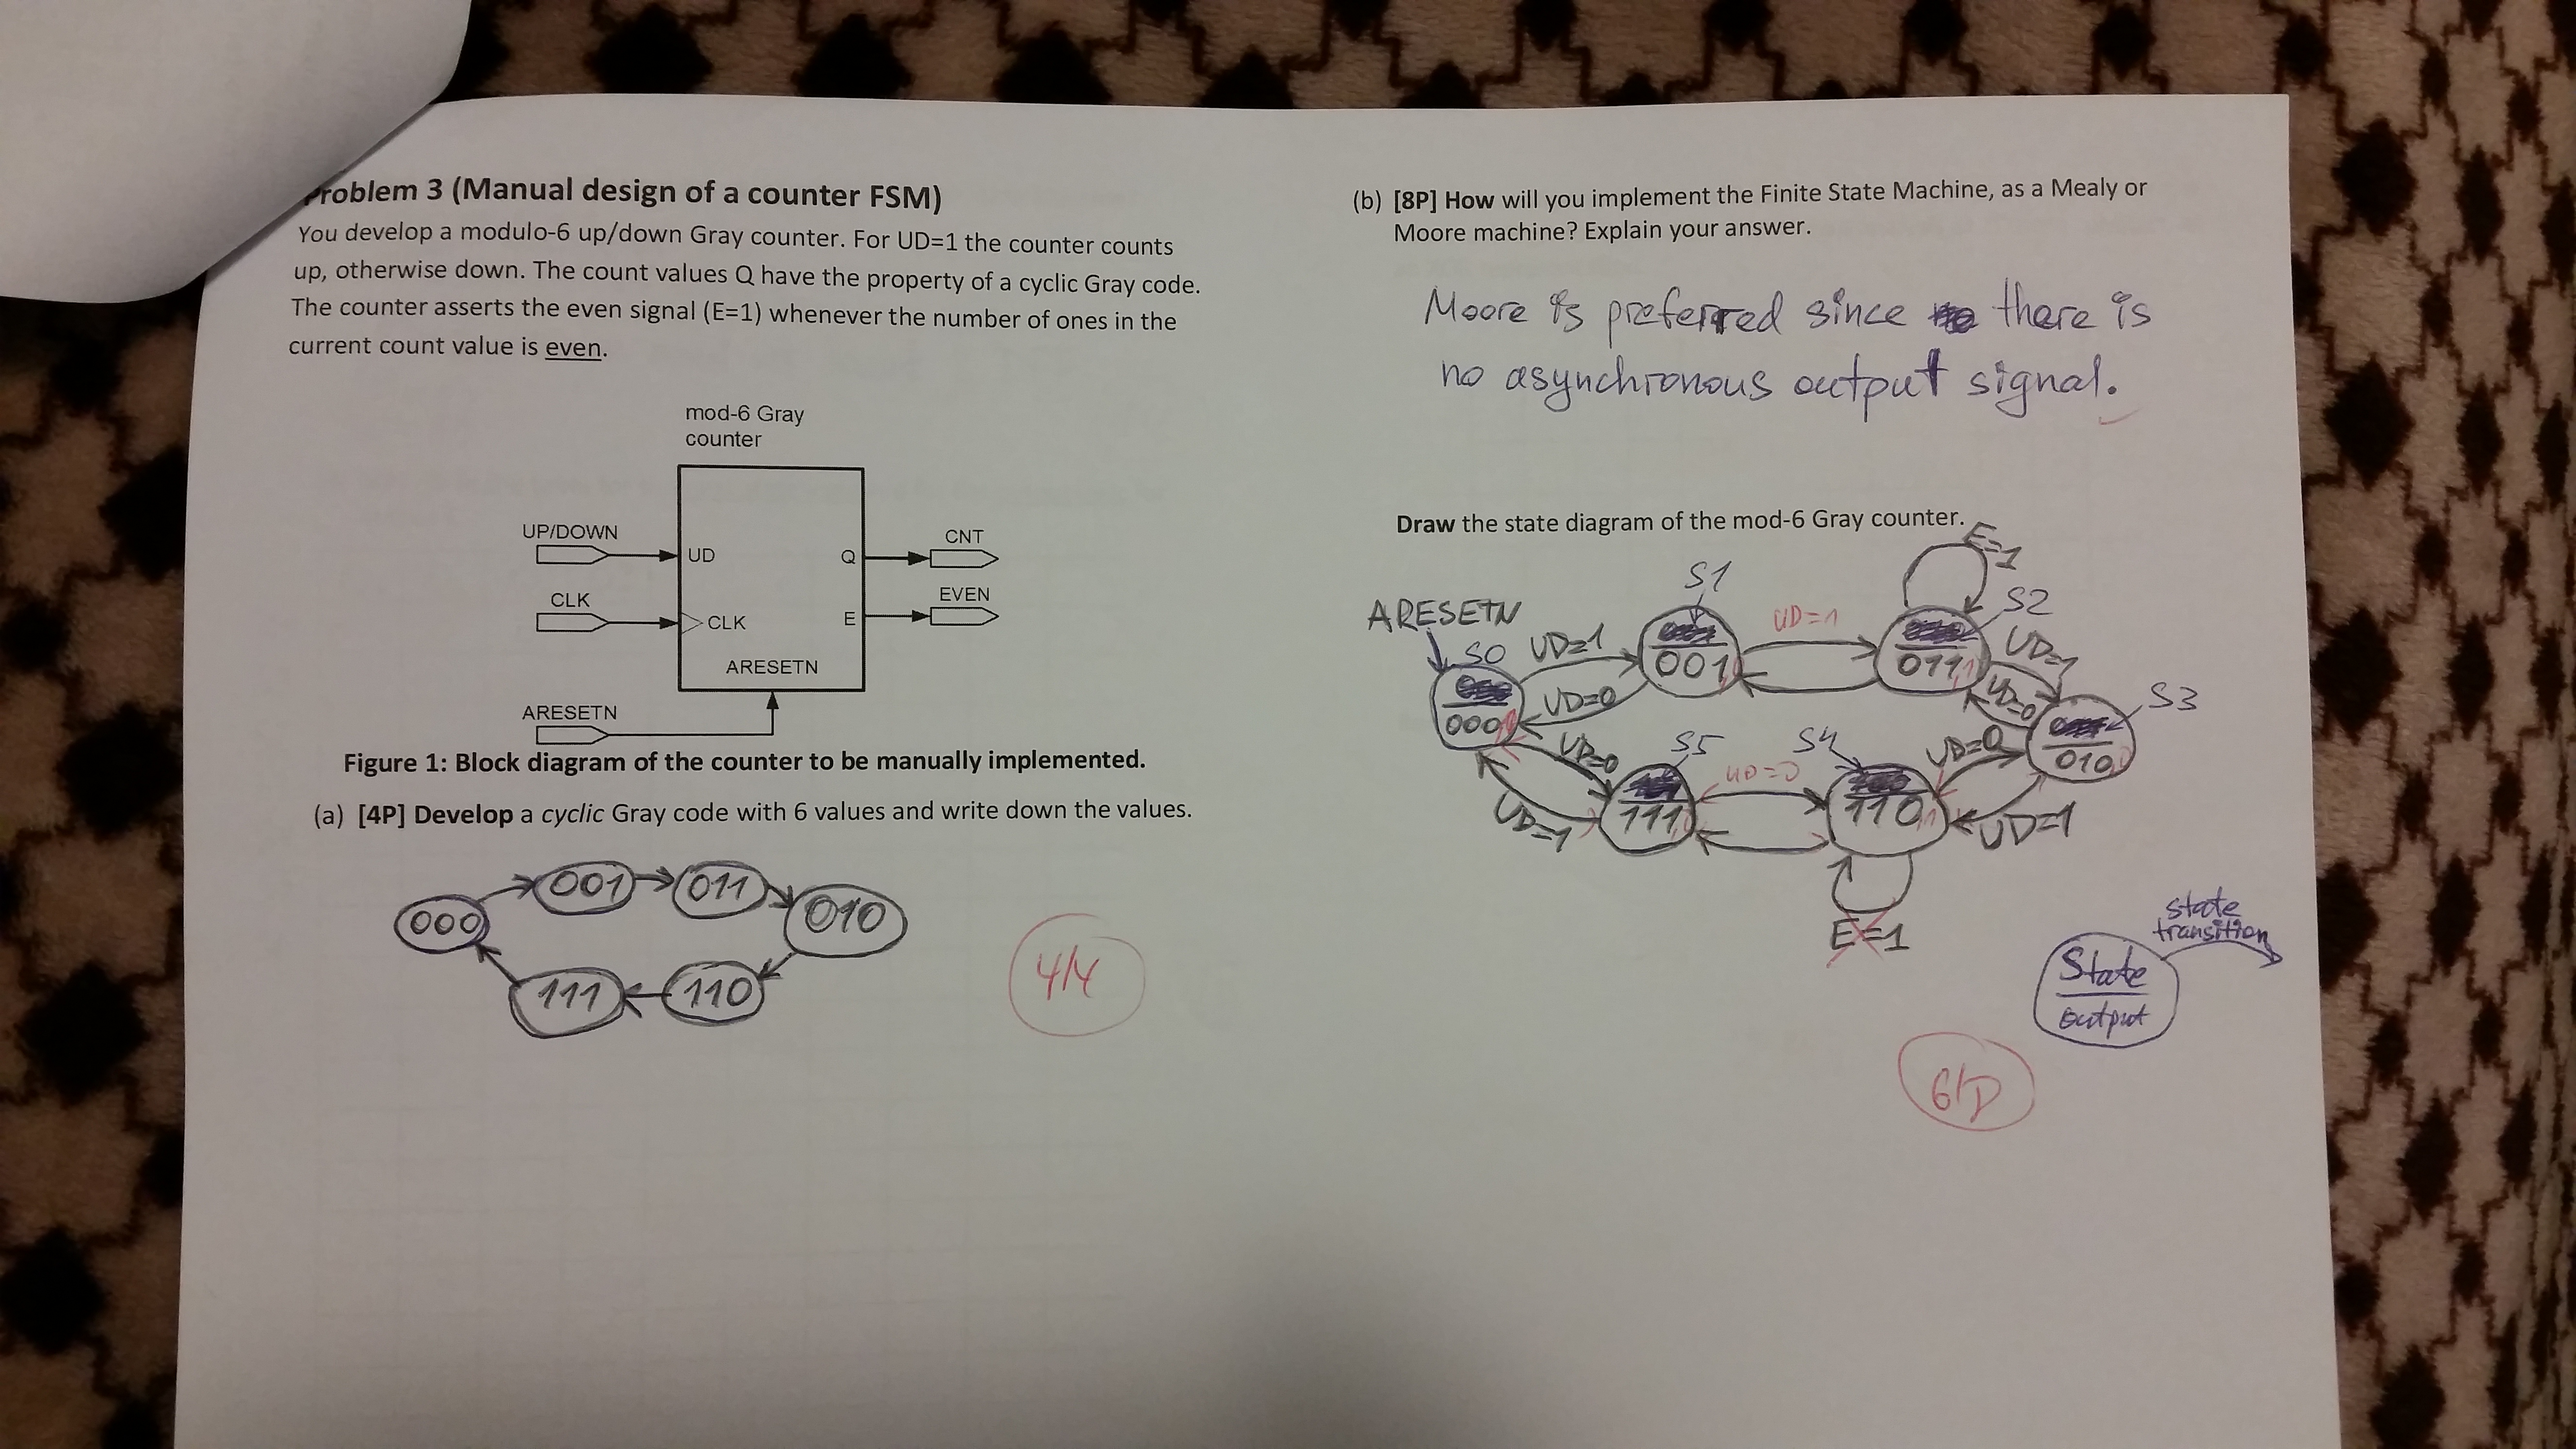 Problem 3 (Manual design of a counter FSM)
You develop a modulo-6 up/down Gray counter. For UD=1 the counter counts
up, otherwise down. The count values Q have the property of a cyclic Gray code.
The counter asserts the even signal (E=1) whenever the number of ones in the
current count value is even.
mod-6 Gray
counter
UP/DOWN
UD
Q
CNT
CLK
CLK
E
EVEN
ARESETN
ARESETN
Figure 1: Block diagram of the counter to be manually implemented.
(a) [4P] Develop a cyclic Gray code with 6 values and write down the values.
000
001
011
010
111
110
4/4
(b) [8P] How will you implement the Finite State Machine, as a Mealy or
Moore machine? Explain your answer.
Moore is preferred since there is
no asynchronous output signal.
Draw the state diagram of the mod-6 Gray counter.
E=1
ARESETN
S0
UD=1
S1
UD=1
S2
UD=1
S3
001
011
000
UD=0
UD=0
010
UD=0
S5
UD=0
S4
UD=0
111
110
UD=1
UD=1
E=1
state
transition
State
output